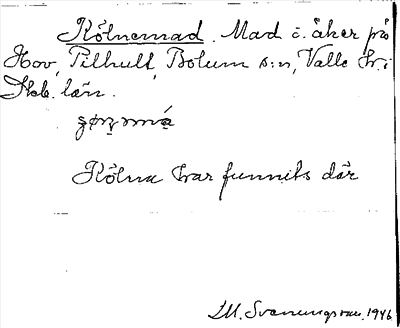 Kölnemad. Mad i åker på
Hov, Tilhult, Bolum s:n, Valle hd i
Skb. län.
Kölna har funnits där
M. Svanungsson. 1946